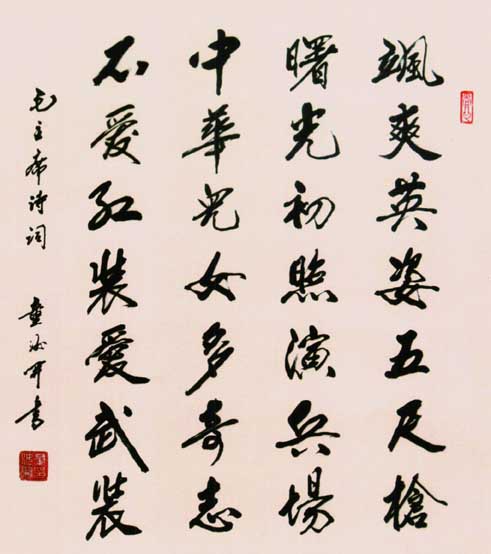 颯爽英姿五尺槍
曙光初照演兵場
中華兒女多奇志
不愛紅裝愛武裝
毛主席诗词